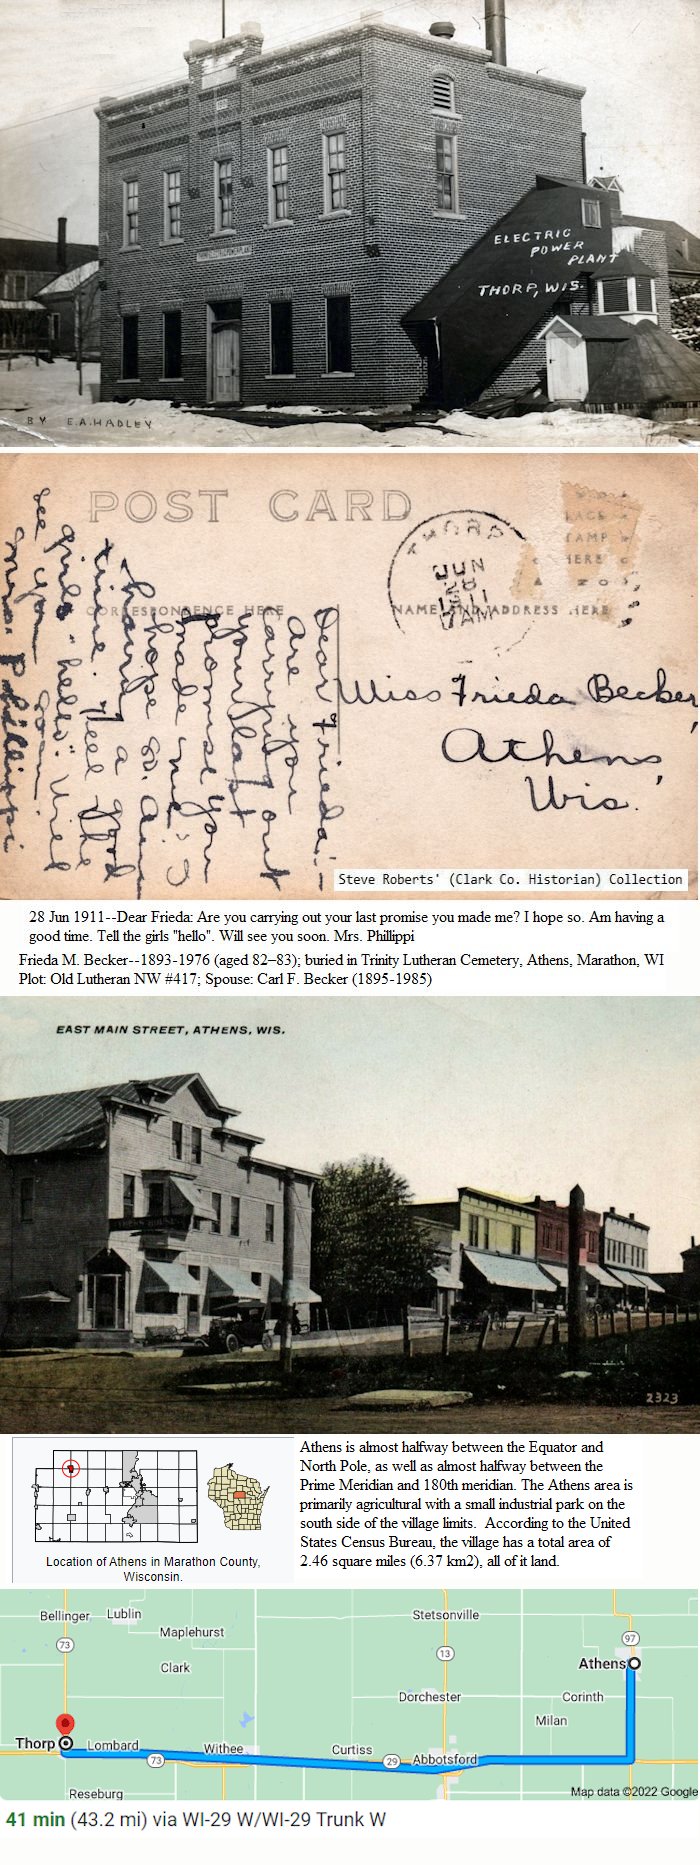 ELECTRIC
POWER
PLANT
THORP, WIS.
BY E.A. HADLEY
POST CARD
THORP
JUN
28
1911
7 AM
PLACE
STAMP
HERE
CORRESPONDENCE HERE
NAME AND ADDRESS HERE
Dear Frieda:-
Are you
carrying out
your last
promise you
made me?
I hope so. Am
having a good
time. Tell the
girls "hello". Will
see you soon
Mrs. Phillippi
Miss Frieda Becker,
Athens,
Wis.
Steve Roberts' (Clark Co. Historian) Collection
28 Jun 1911--Dear Frieda: Are you carrying out your last promise you made me? I hope so. Am having a
good time. Tell the girls "hello". Will see you soon. Mrs. Phillippi
Frieda M. Becker--1893-1976 (aged 82–83); buried in Trinity Lutheran Cemetery, Athens, Marathon, WI
Plot: Old Lutheran NW #417; Spouse: Carl F. Becker (1895-1985)
EAST MAIN STREET, ATHENS, WIS.
2323
Location of Athens in Marathon County,
Wisconsin.
Athens is almost halfway between the Equator and
North Pole, as well as almost halfway between the
Prime Meridian and 180th meridian. The Athens area is
primarily agricultural with a small industrial park on the
south side of the village limits. According to the United
States Census Bureau, the village has a total area of
2.46 square miles (6.37 km2), all of it land.
Bellinger
Lublin
Stetsonville
Maplehurst
73
97
13
Clark
Athens
Dorchester
Corinth
Milan
Thorp
Lombard
Withee
Curtiss
73
29
Abbotsford
Reseburg
Map data ©2022 Google
41 min (43.2 mi) via WI-29 W/WI-29 Trunk W